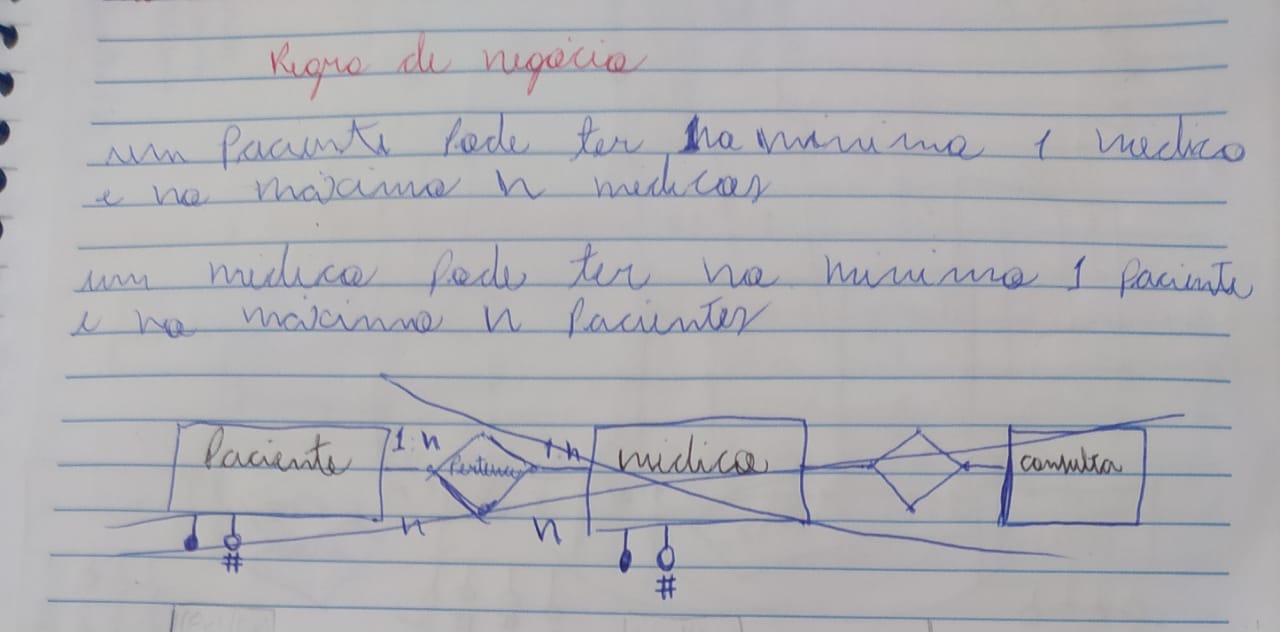 Regra de negócio
um Paciente Pode ter no minimo 1 medico
e no máximo n medicos
um medico Pode ter no minimo 1 Paciente
e no máximo n Pacientes
Paciente 1:n Pertence 1:n médico consulta
n n
# #